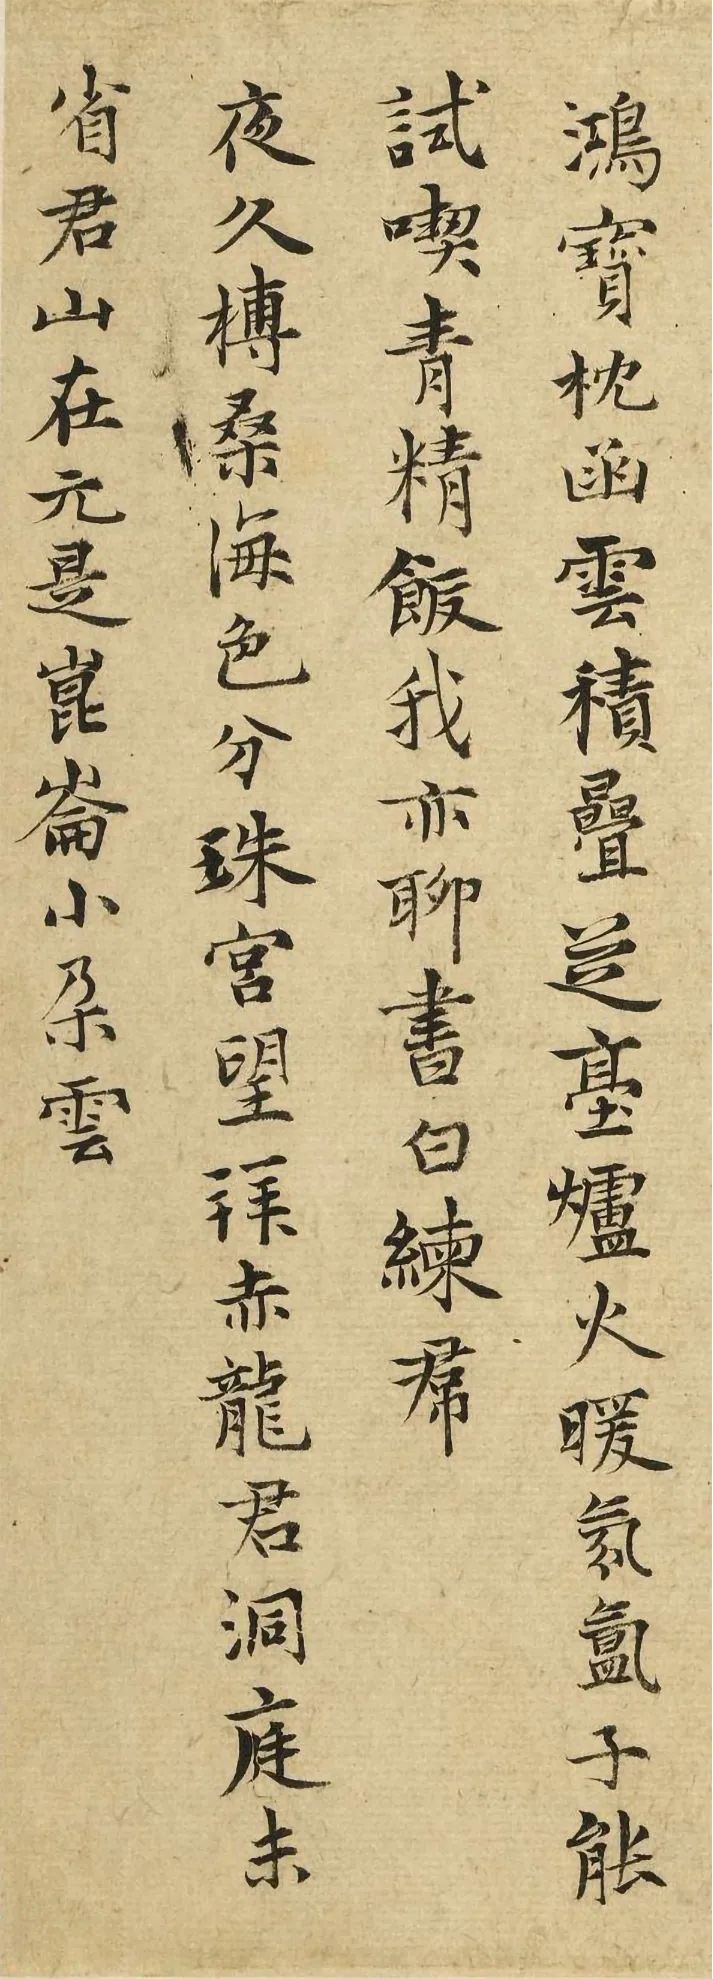 鴻寶枕函雲積疊芝臺爐火暖氛氳子能
試喫青精飯我亦聊書白練帬
夜久榑桑海色分珠宮望拜赤龍君洞庭未
省君山在元是崑崙小朵雲